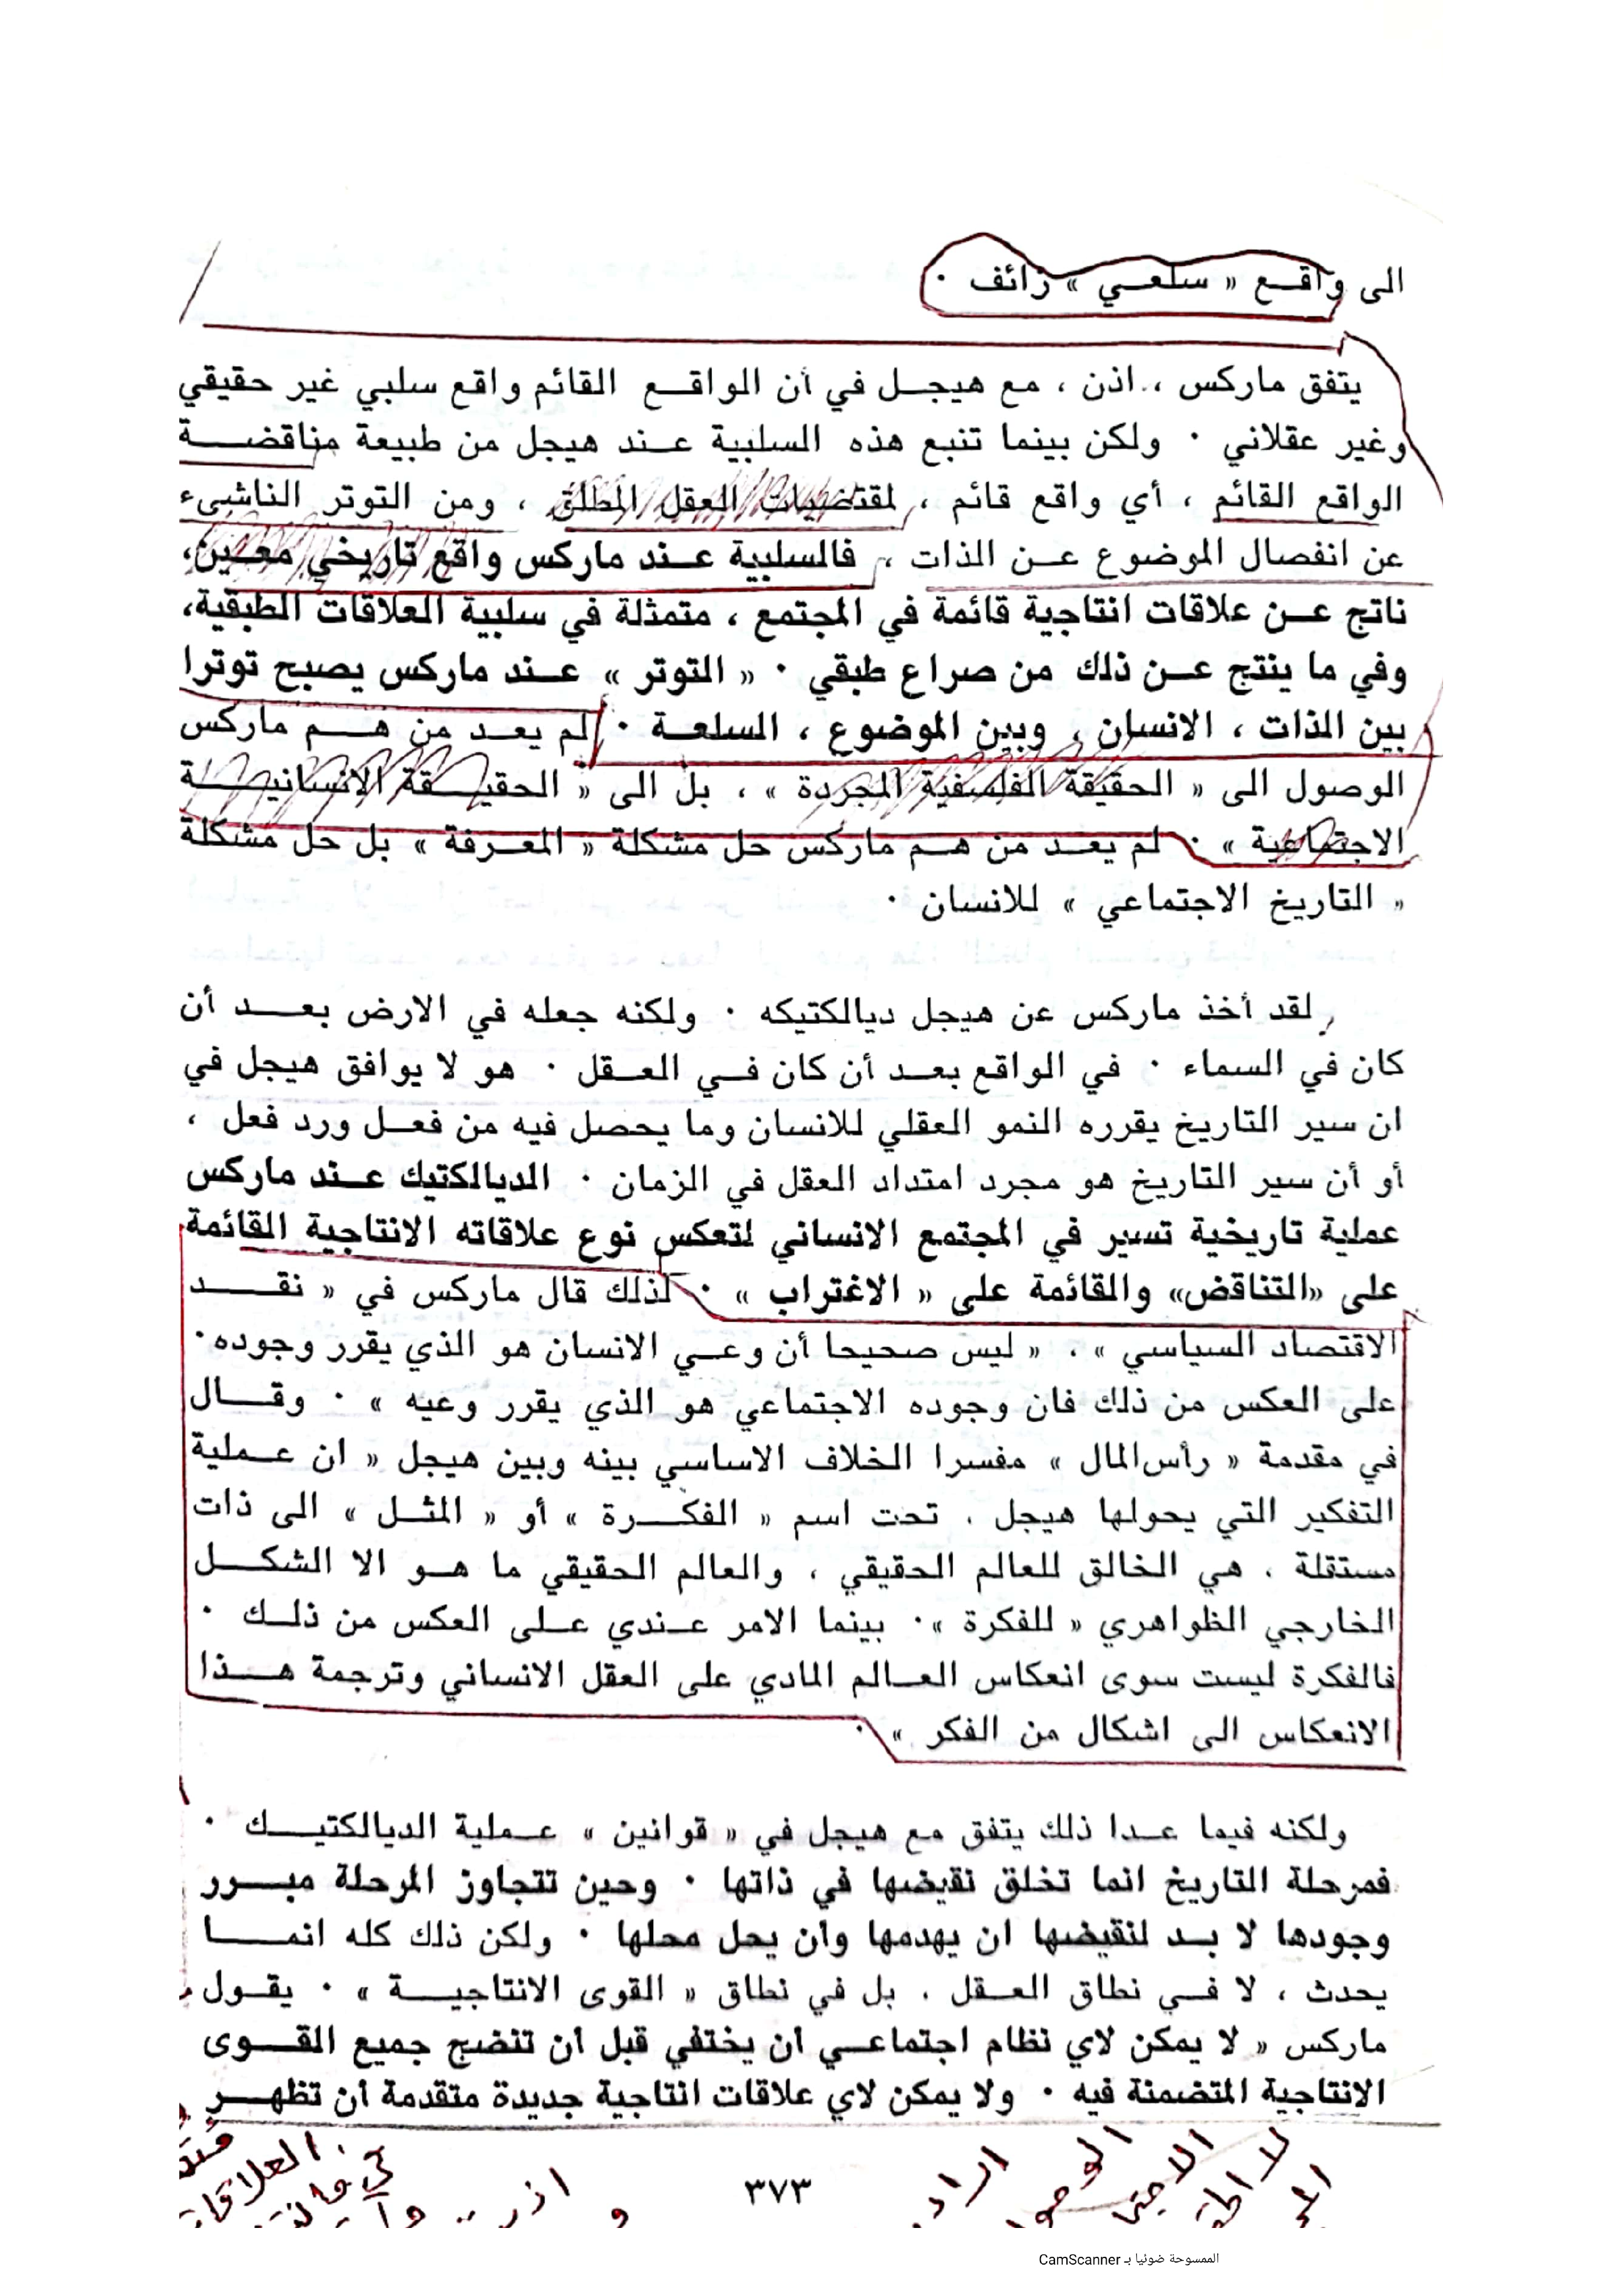 الى واقع « سلعي » زائف ٠
يتفق ماركس ، اذن ، مع هيجل في أن الواقع القائم واقع سلبي غير حقيقي
وغير عقلاني ٠ ولكن بينما تنبع هذه السلبية عند هيجل من طبيعة مناقضة
الواقع القائم ، أي واقع قائم ، لمقتضيات العقل المطلق ، ومن التوتر الناشىء
عن انفصال الموضوع عن الذات ، فالسلبية عند ماركس واقع تاريخي معين،
ناتج عن علاقات انتاجية قائمة في المجتمع ، متمثلة في سلبية العلاقات الطبقية،
وفي ما ينتج عن ذلك من صراع طبقي ٠ « التوتر » عند ماركس يصبح توترا
بين الذات ، الانسان ، وبين الموضوع ، السلعة ٠ لم يعد من هم ماركس
الوصول الى « الحقيقة الفلسفية المجردة » ، بل الى « الحقيقة الانسانية
الاجتماعية » ٠ لم يعد من هم ماركس حل مشكلة « المعرفة » بل حل مشكلة
« التاريخ الاجتماعي » للانسان ٠
لقد أخذ ماركس عن هيجل ديالكتيكه ٠ ولكنه جعله في الارض بعد أن
كان في السماء ٠ في الواقع بعد أن كان في العقل ٠ هو لا يوافق هيجل في
ان سير التاريخ يقرره النمو العقلي للانسان وما يحصل فيه من فعل ورد فعل ،
أو أن سير التاريخ هو مجرد امتداد العقل في الزمان ٠ الديالكتيك عند ماركس
عملية تاريخية تسير في المجتمع الانساني لتعكس نوع علاقاته الانتاجية القائمة
على «التناقض» والقائمة على « الاغتراب » ٠ لذلك قال ماركس في « نقد
الاقتصاد السياسي » ، « ليس صحيحا أن وعي الانسان هو الذي يقرر وجوده ٠
على العكس من ذلك فان وجوده الاجتماعي هو الذي يقرر وعيه » ٠ وقال
في مقدمة « رأس المال » مفسرا الخلاف الاساسي بينه وبين هيجل « ان عملية
التفكير التي يحولها هيجل ، تحت اسم « الفكرة » أو « المثل » الى ذات
مستقلة ، هي الخالق للعالم الحقيقي ، والعالم الحقيقي ما هو الا الشكل
الخارجي الظواهري « للفكرة »٠ بينما الامر عندي على العكس من ذلك ٠
فالفكرة ليست سوى انعكاس العالم المادي على العقل الانساني وترجمة هذا
الانعكاس الى اشكال من الفكر » ٠
ولكنه فيما عدا ذلك يتفق مع هيجل في « قوانين » عملية الديالكتيك ٠
فمرحلة التاريخ انما تخلق نقيضها في ذاتها ٠ وحين تتجاوز المرحلة مبرر
وجودها لا بد لنقيضها ان يهدمها وان يحل محلها ٠ ولكن ذلك كله انما
يحدث ، لا في نطاق العقل ، بل في نطاق « القوى الانتاجية » ٠ يقول
ماركس « لا يمكن لاي نظام اجتماعي أن يختفي قبل أن تنضج جميع القوى
الانتاجية المتضمنة فيه ٠ ولا يمكن لاي علاقات انتاجية جديدة متقدمة أن تظهر
٣٧٣
الممسوحة ضوئيا بـ CamScanner